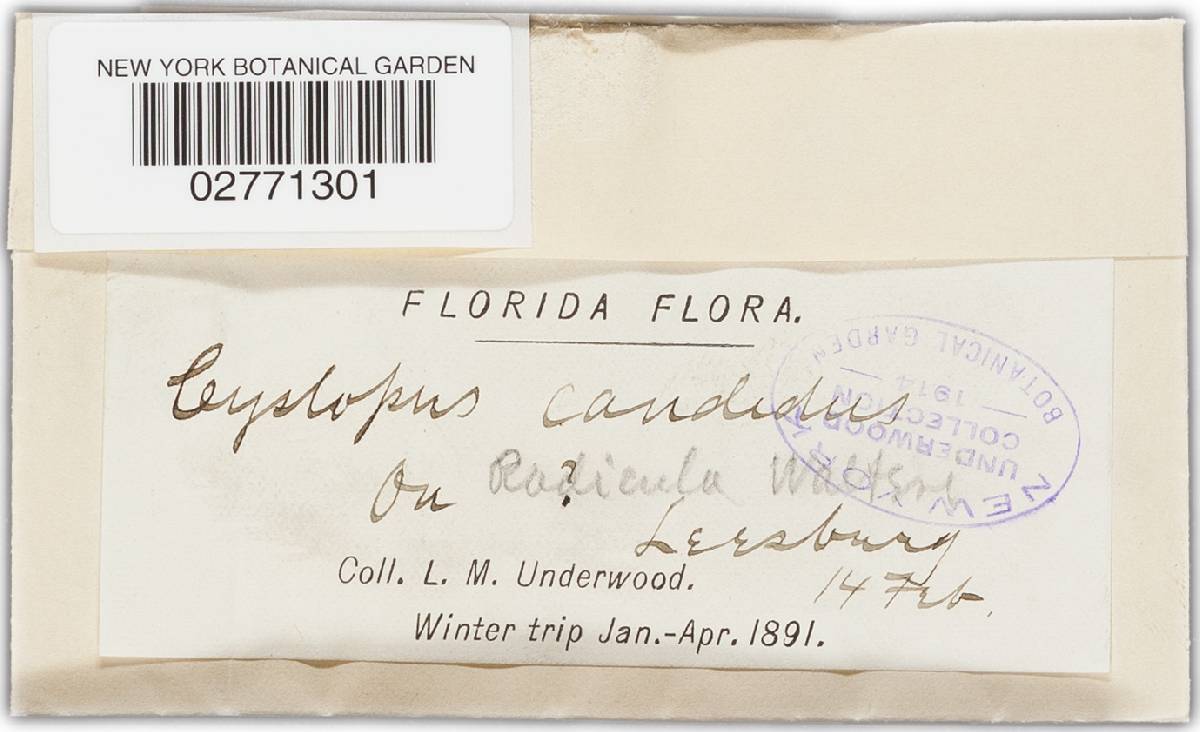 NEW YORK BOTANICAL GARDEN
02771301
FLORIDA FLORA.
Cystopus candidus
On Radicula Walteri
?
Leesburg
14 Feb.
Coll. L. M. Underwood.
Winter trip Jan.-Apr. 1891.
NEW YORK
UNDERWOOD
COLLECTION
— 1914 —
BOTANICAL GARDEN